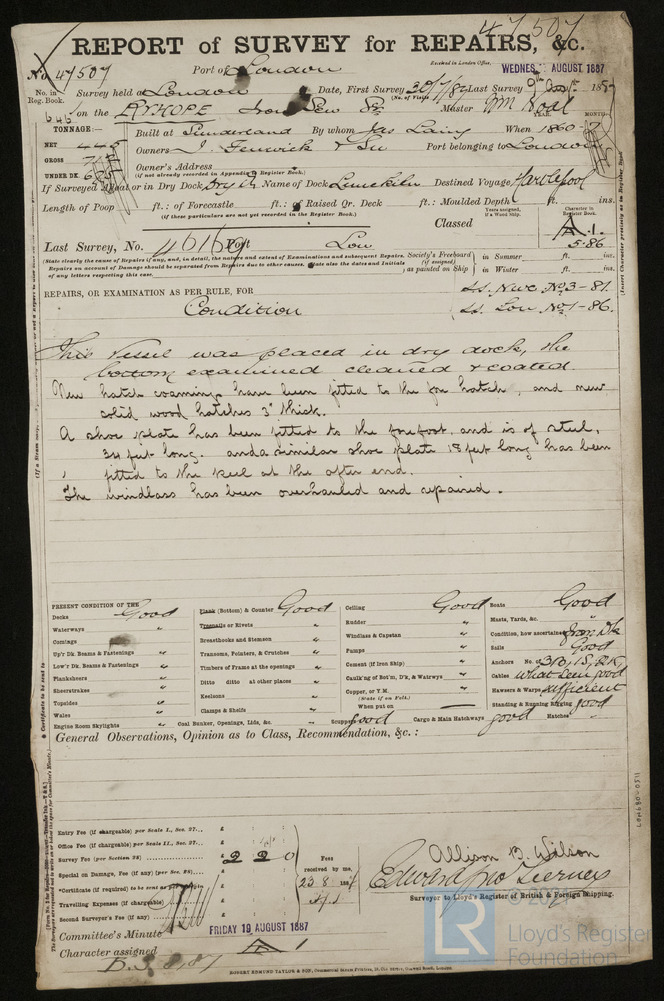 47507
REPORT of SURVEY for REPAIRS, &c.
No. 47507
Port of London
Received in London Office,
WEDNES AUGUST 1887
No. in Reg. Book.
Survey held at London
Date, First Survey 30/7/87
Last Survey 9th
(No. of Visits
646 on the RYHOPE Iron Screw
Master Wm
YEAR. MONTH.
TONNAGE:—
Built at Sunderland By whom Jas Laing When 1860
NET
GROSS
UNDER DK.
Owners J. Fenwick & Son Port belonging to London
Owner's Address
(if not already recorded in Appendix to Register Book.)
If Surveyed Afloat or in Dry Dock Dry Dk Name of Dock Limekiln Destined Voyage Hartlepool
Length of Poop ft.; of Forecastle ft.; of Raised Qr. Deck ft.; Moulded Depth ft. ins.
(if these particulars are not yet recorded in the Register Book.)
Classed
Character in Register Book.
A.1.
5.86
Last Survey, No. Port Lon
(State clearly the cause of Repairs if any, and, in detail, the nature and extent of Examinations and subsequent Repairs.
Repairs on account of Damage should be separated from Repairs due to other causes. State also the dates and Initials
of any letters respecting this case.
Society's Freeboard
(if assigned)
as painted on Ship
in Summer ft. ins.
in Winter ft. ins.
REPAIRS, OR EXAMINATION AS PER RULE, FOR
Condition
SS. Nwc No3-81.
SS. Lon No1-86.
This vessel was placed in dry dock, the
bottom examined cleaned & coated.
New hatch coamings have been fitted to the fore hatch, and new
solid wood hatches 3" thick.
A shoe plate has been fitted to the forefoot, and is of steel,
34 feet long. and a similar shoe plate 18 feet long has been
fitted to the keel at the after end.
The windlass has been overhauled and repaired.
PRESENT CONDITION OF THE
Decks Good
Waterways "
Comings
Up'r Dk. Beams & Fastenings "
Low'r Dk. Beams & Fastenings "
Planksheers "
Sheerstrakes "
Topsides "
Wales "
Engine Room Skylights "
Plank (Bottom) & Counter Good
Treenails or Rivets "
Breasthooks and Stemson "
Transoms, Pointers, & Crutches "
Timbers of Frame at the openings "
Ditto ditto at other places "
Keelsons "
Clamps & Shelfs "
Coal Bunker, Openings, Lids, &c. "
Ceiling Good
Rudder "
Windlass & Capstan "
Pumps "
Cement (if Iron Ship) "
Caulk'ng of Bot'm, D'k, & Watrwys "
Copper, or Y.M.
(State if on Felt.)
When put on
Scuppers Good
Cargo & Main Hatchways good
Boats Good
Masts, Yards, &c. "
Condition, how ascertained from Dk
Sails Good
Anchors No. of 3B, 1S, 2K,
Cables what seen good
Hawsers & Warps sufficient
Standing & Running Rigging good
Hatches "
General Observations, Opinion as to Class, Recommendation, &c.:
Entry Fee (if chargeable) per Scale I., Sec. 27... £
Office Fee (if chargeable) per Scale II., Sec. 27... £
Survey Fee (per Section 28) £ 2 2 0
Special on Damage, Fee (if any) (per Sec. 28) £
*Certificate (if required) to be sent as £
Travelling Expenses (if chargeable) £
Second Surveyor's Fee (if any) £
Fees
received by me,
23.8.1887
Allison B. Wilson
Surveyor to Lloyd's Register of British & Foreign Shipping.
Committee's Minute
FRIDAY 19 AUGUST 1887
Character assigned A 1
ROBERT EDMUND TAYLOR & SON, Commercial Steam Printers, 19, Old Street, Goswell Road, London.
LR
Lloyd's Register
Foundation